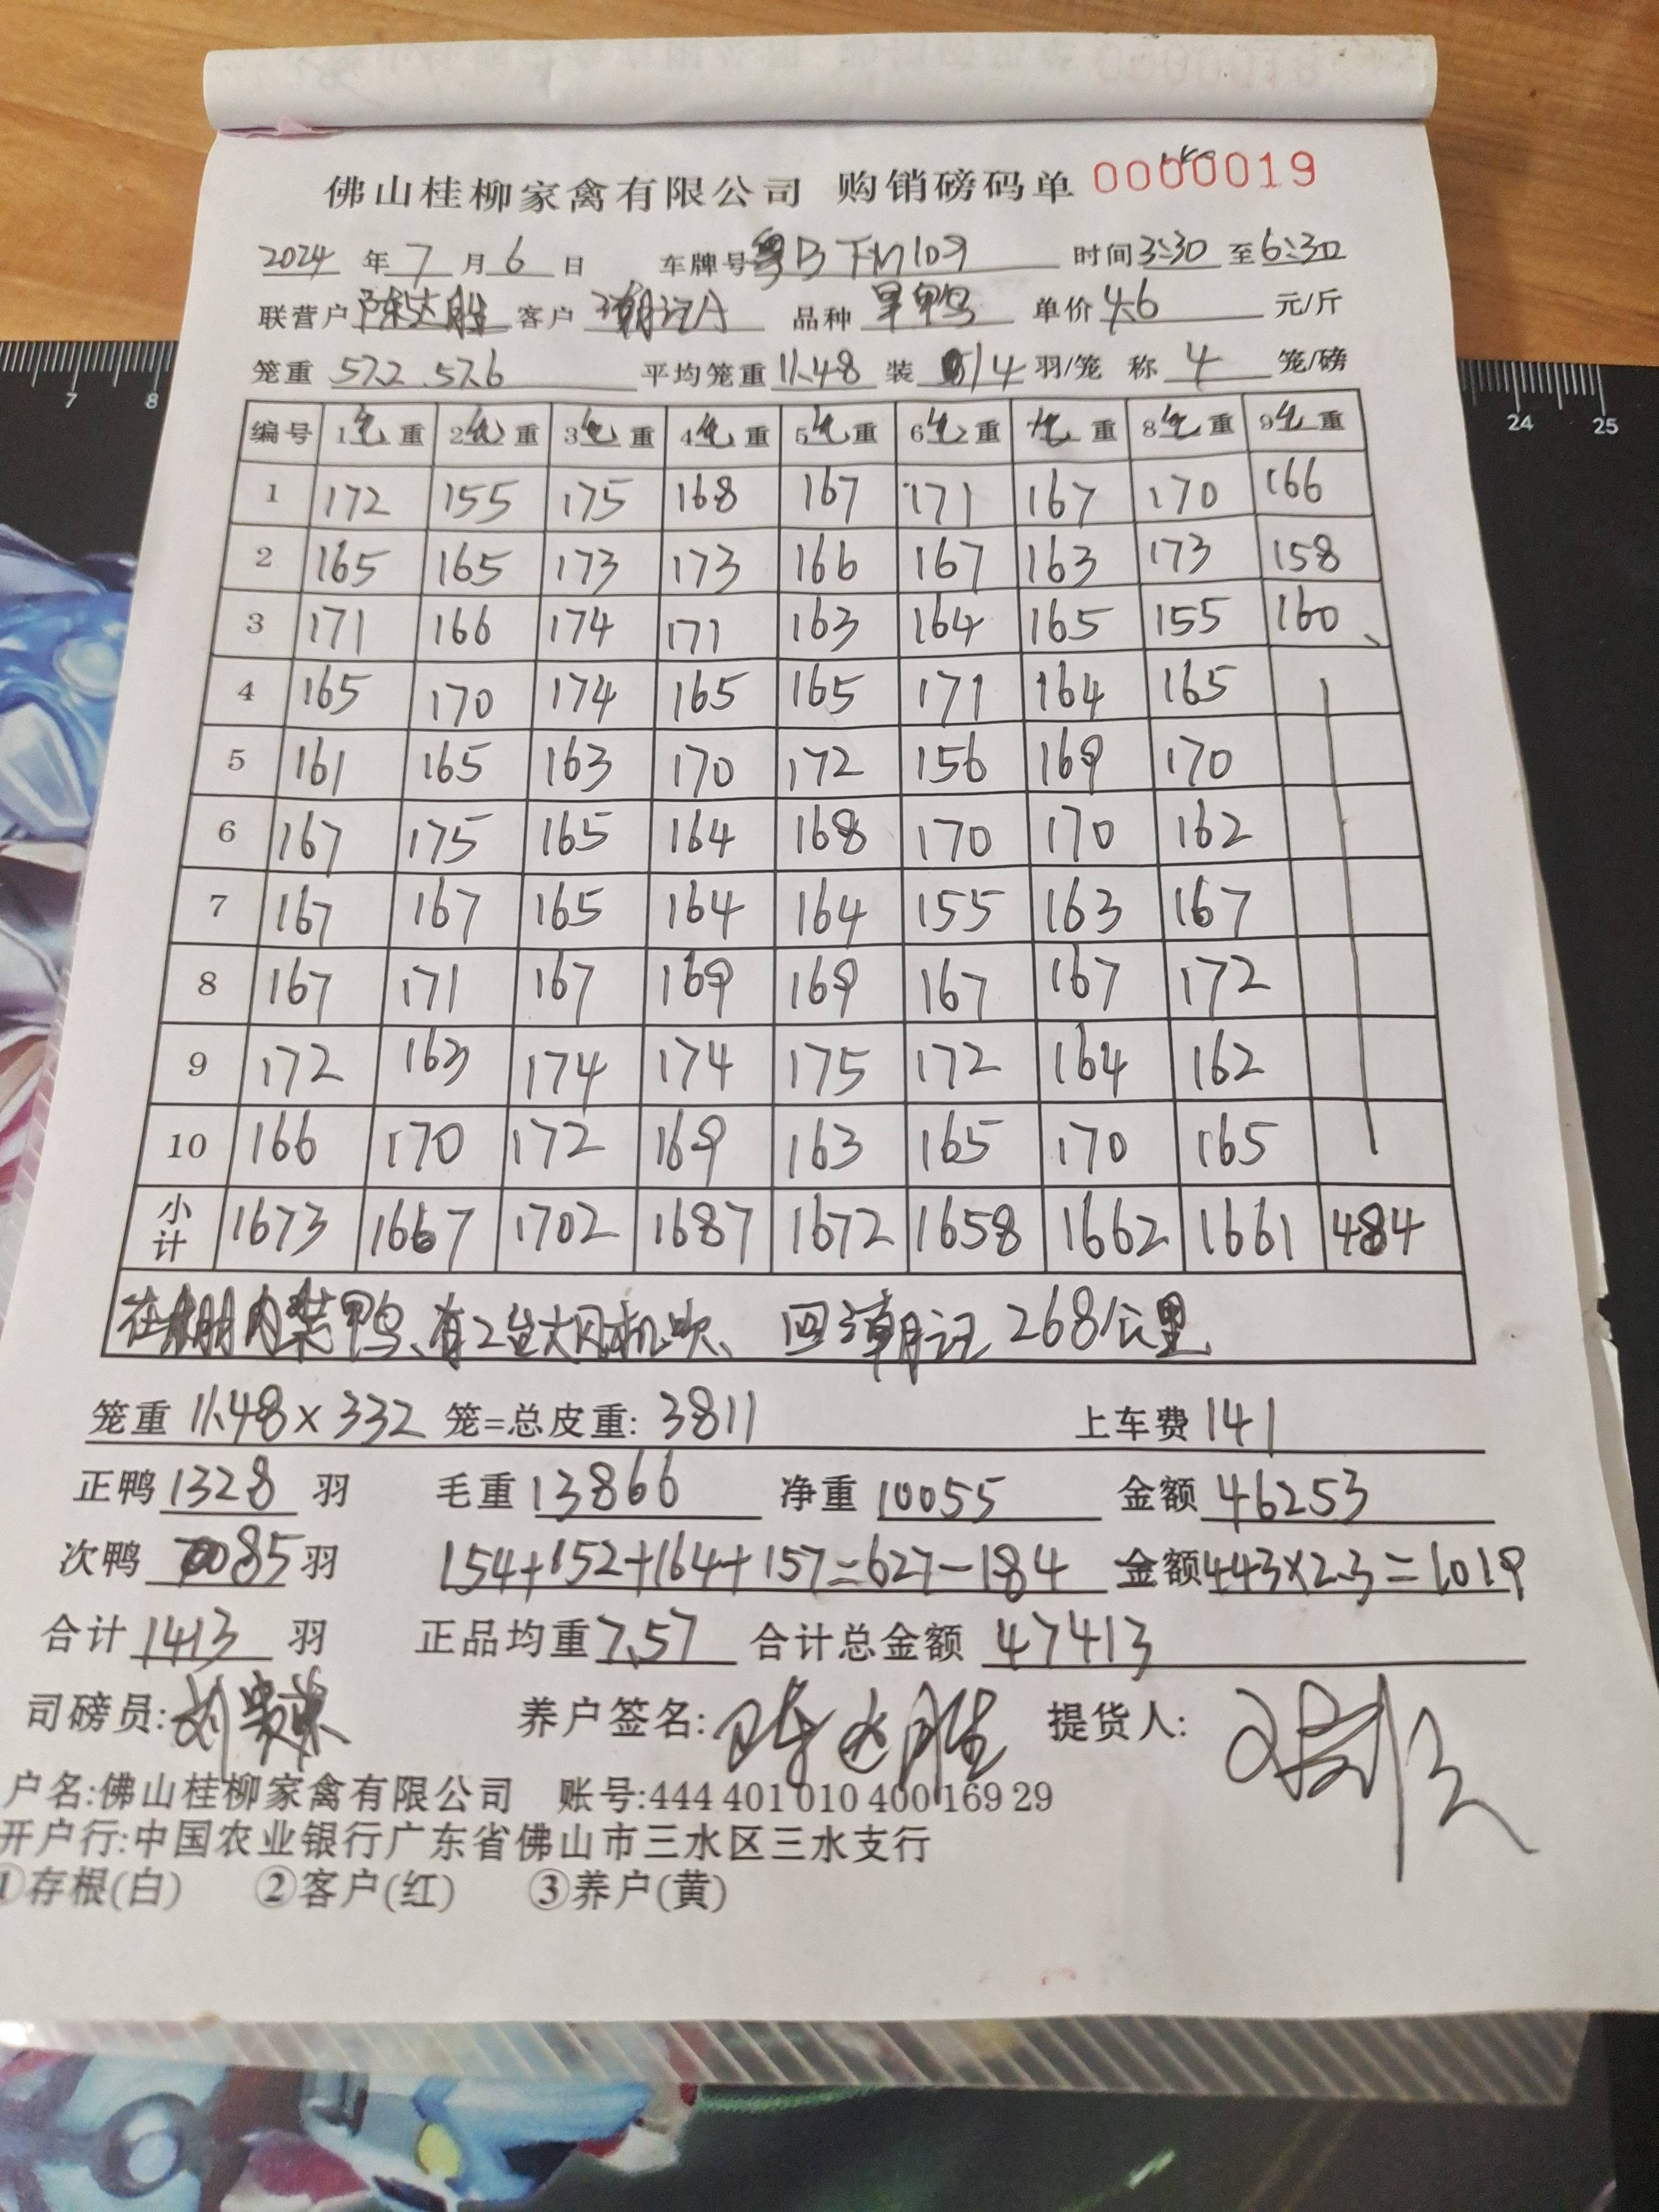 佛山桂柳家禽有限公司 购销磅码单 0000019
2024 年 7 月 6 日 车牌号 粤B 时间 3:30 至 6:30
联营户 陈达胜 客户 潮记A 品种 单价 4.6 元/斤
笼重 57.2 57.6 平均笼重 11.48 装 14 羽/笼 称 4 笼/磅
编号 1毛重 2毛重 3毛重 4毛重 5毛重 6毛重 7毛重 8毛重 9毛重
1 172 155 175 168 167 171 167 170 166
2 165 165 173 173 166 167 163 173 158
3 171 166 174 171 163 164 165 155 160
4 165 170 174 165 165 171 164 165
5 161 165 163 170 172 156 169 170
6 167 175 165 164 168 170 170 162
7 167 167 165 164 164 155 163 167
8 167 171 167 169 169 167 167 172
9 172 163 174 174 175 172 164 162
10 166 170 172 169 163 165 170 165
小计 1673 1667 1702 1687 1672 1658 1662 1661 484
在棚内装鸭、有2台大风机吹、 回潮记 268公里
笼重 11.48×332 笼=总皮重: 3811 上车费 141
正鸭 1328 羽 毛重 13866 净重 10055 金额 46253
次鸭 85 羽 154+152+164+157=627-184 金额 443×2.3=1019
合计 1413 羽 正品均重 7.57 合计总金额 47413
司磅员: 养户签名: 陈达胜 提货人:
户名:佛山桂柳家禽有限公司 账号:444 401 010 400 169 29
开户行:中国农业银行广东省佛山市三水区三水支行
①存根(白) ②客户(红) ③养户(黄)
7 8 24 25